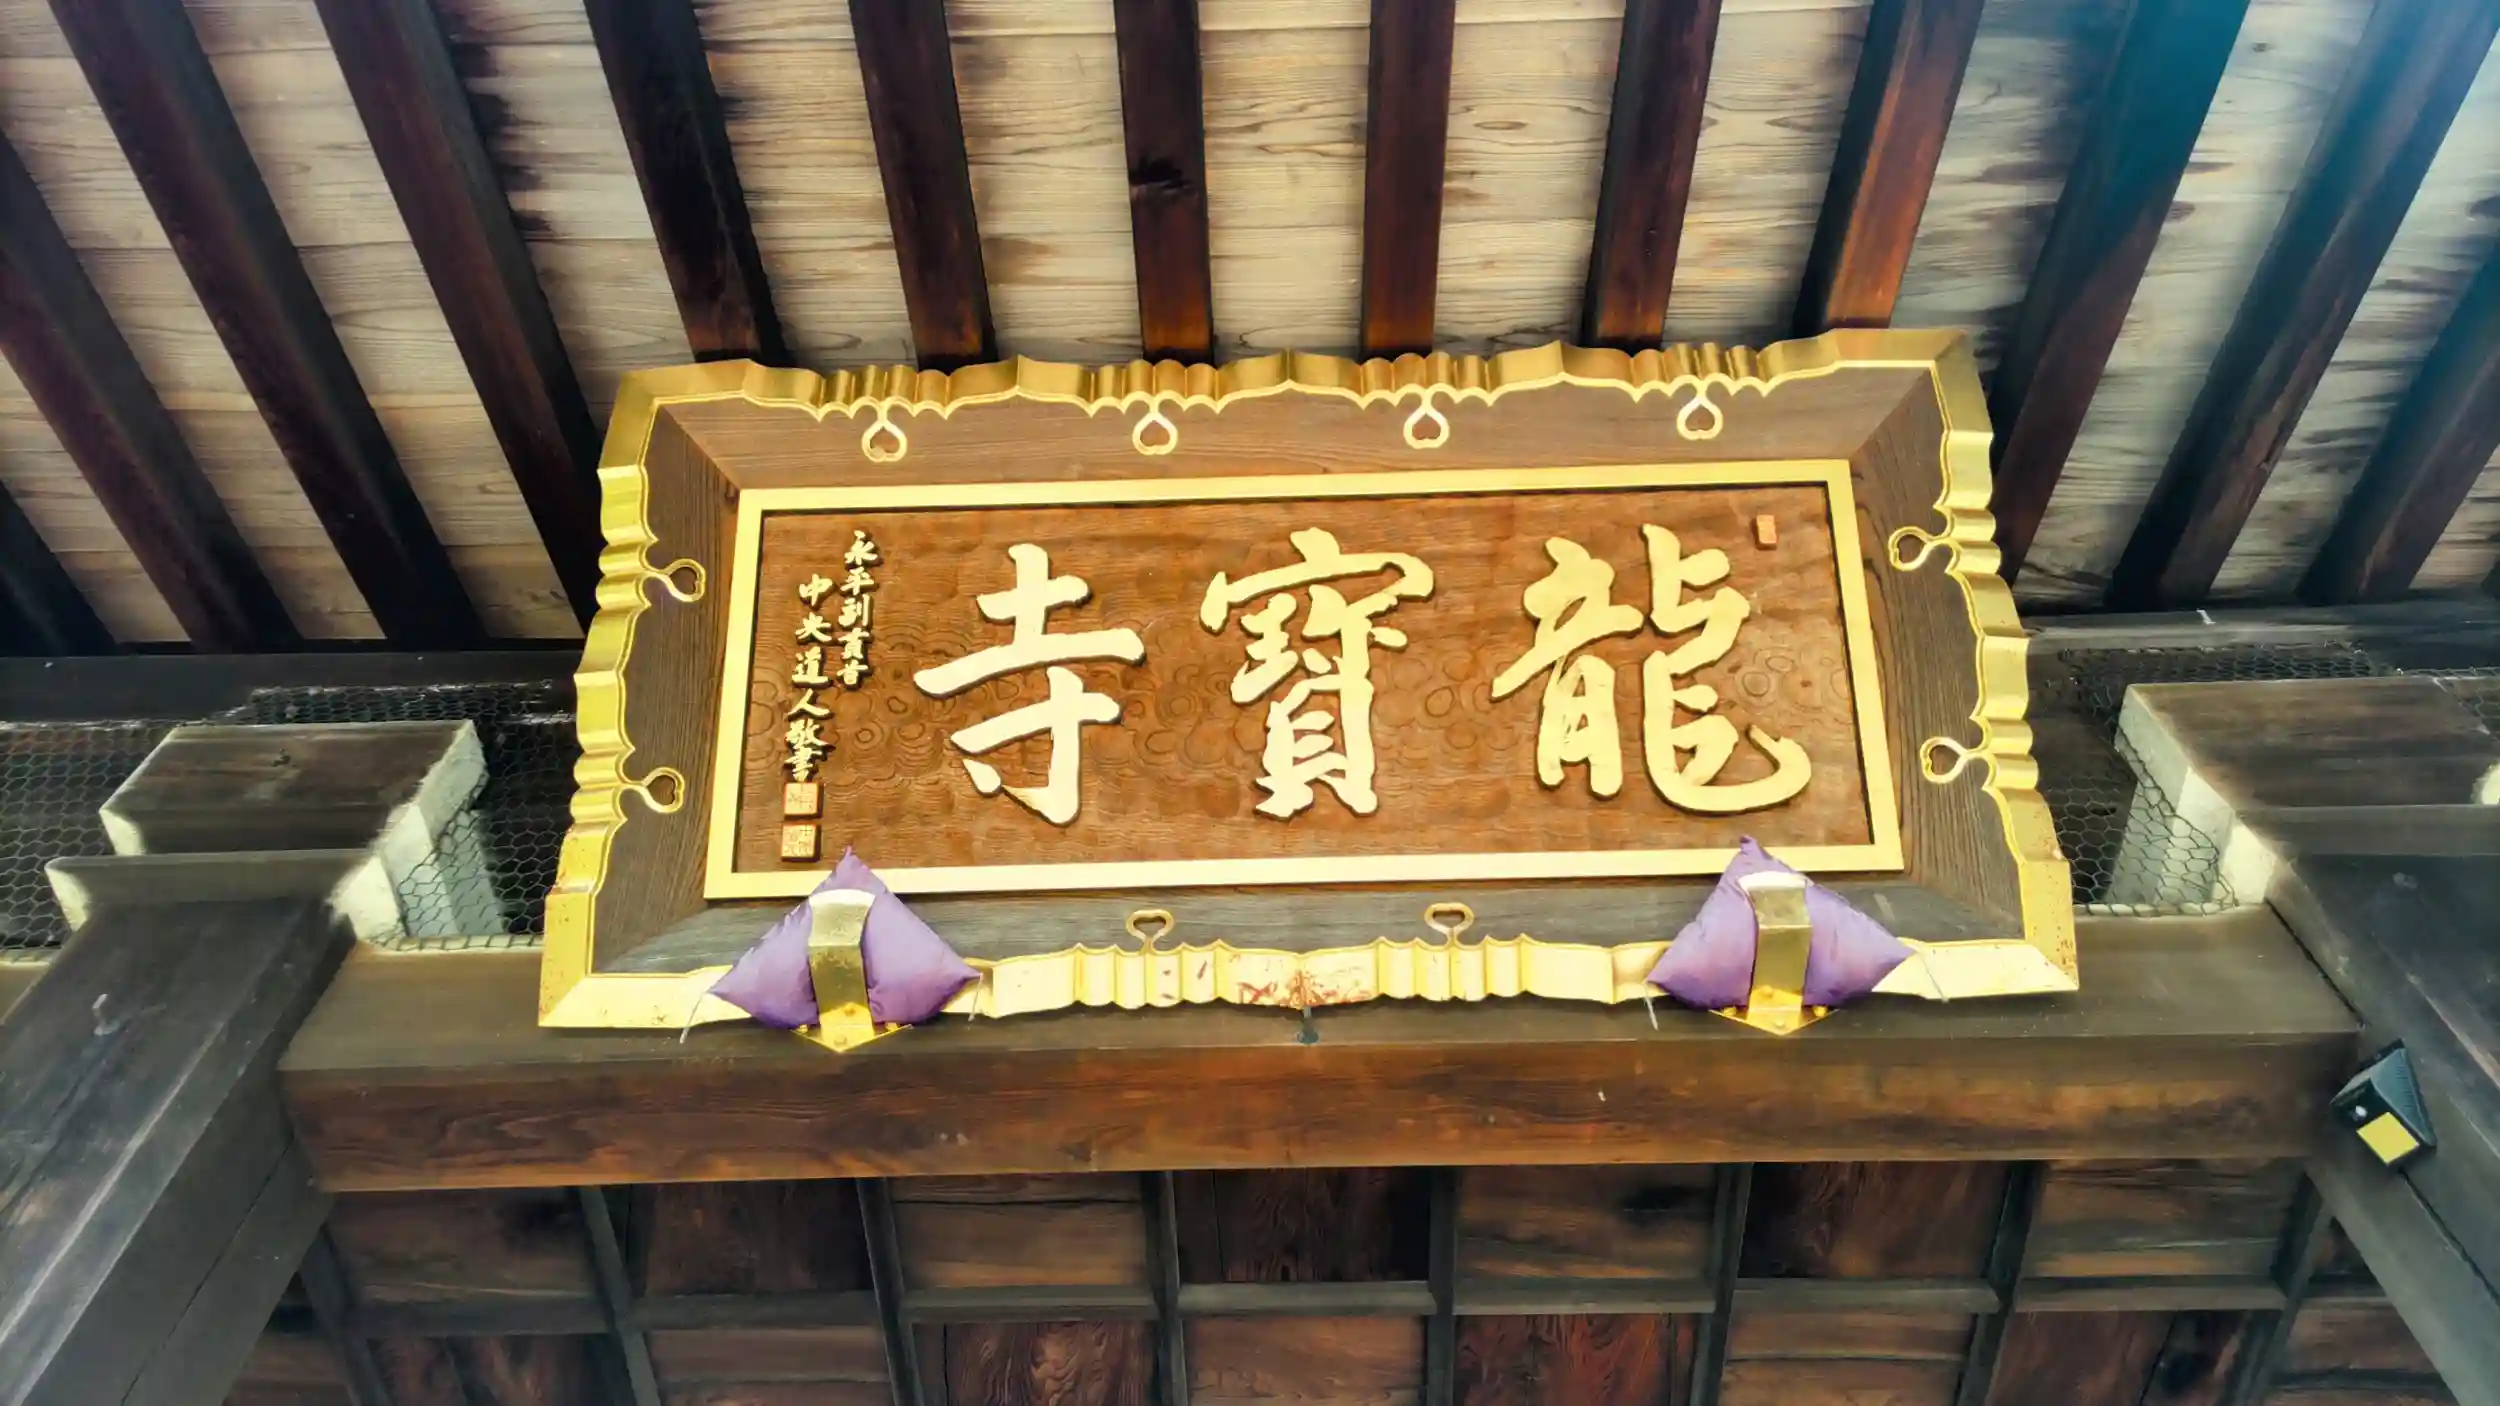 龍寶寺
永平副貫首
中央道人敬書